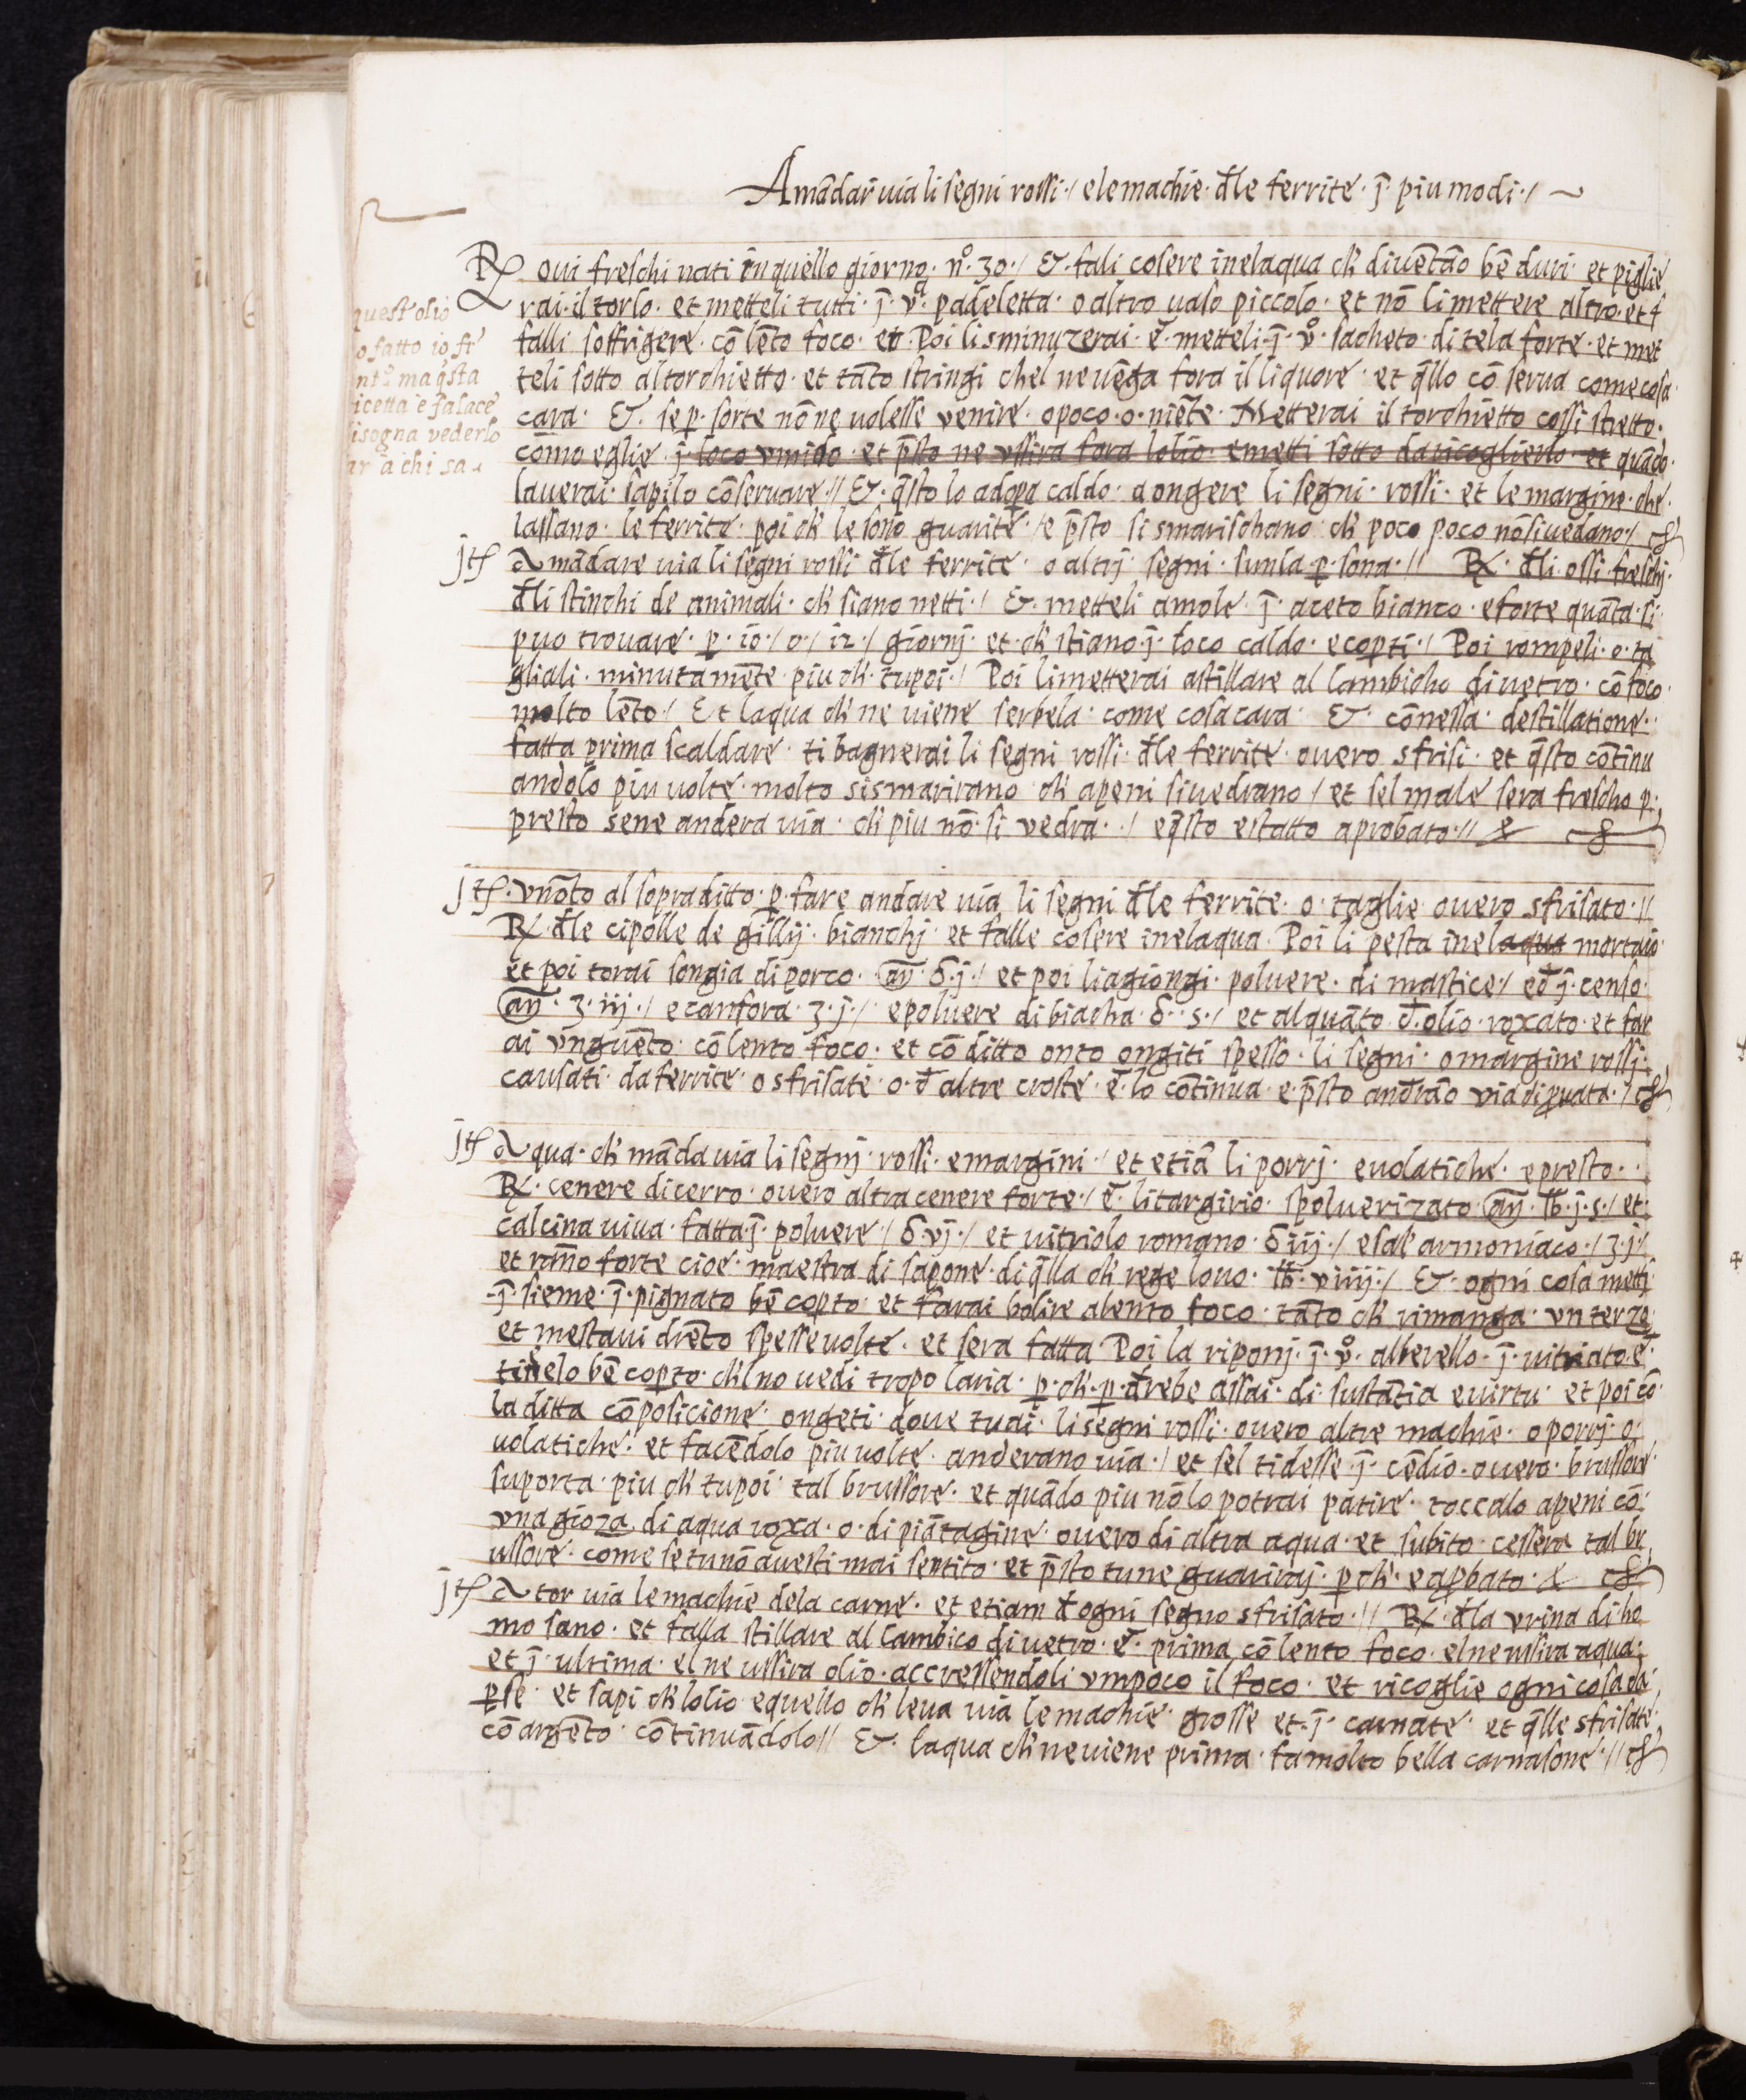 Amādar via li segni rossi·/ ele machie· đle ferrite· j̄· piu modi·/ ~
℞ oui freschi nati in quello giorno· nº· 30·/ &· fali cosere inelaqua ch' diuētāo bē duri· et piglie
rai· il torlo· et metteli tutti· j̄· vª· padeletta· o altro uaso piccolo· et nō li mettere altro· et f
falli soffrigere· cō lēto foco· et· Poi li sminuzerai· ē· metteli· j̄· vº· sacheto· di tela forte· et met
teli sotto al torchietto· et tāto stringi chel ne uēga fora il liquore· et q̄llo cō serua come cosa·
cara· &· se p̱· sorte nō ne uolesse venire· o poco· o· niēte· Metterai il torchietto cossi stretto·
cōmo eglie· j̄· loco vmido· et p̄sto ne vssira fora lolio· e metti sotto da ricoglierlo· et quādo·
lauerai· sapilo cōseruare·// &· q̄sto lo adopa caldo· a ongere li segni· rossi· et le margine· che·
lassano· le ferrite· poi ch' le sono guarite·/ e p̄sto si smarischano· ch' poco poco nō si uedano·/
quest' olio
o fatto io fr
nt.º ma q̄sta
icetta è falace
isogna vederlo
ar à chi sa
jtꝭ A mādare via li segni rossi· đle ferrite· o altrj· segni· sunla p̱sona·// ℞· đli ossi· freschj·
đli stinchi de animali· ch' siano netti·/ &· metteli amole· j̄· aceto bianco· e forte quāta· si·
puo trouare· p̱· 10·/ o·/ 12·/ giornj· et· ch' stiano· j̄· loco caldo· e cop̱ti·/ Poi rompeli· o· ta
gliali· minutamēte· piu ch' tu poi·/ Poi li metterai astillare al lambicho di uetro· cō foco·
molto lēto·/ Et laqua ch' ne uiene serbela· come cosa cara· &· cōnessa· destillatione·
fatta prima scaldare· ti bagnerai li segni rossi· đle ferrite· ouero sfrisi· et q̄sto cōtinu
andolo piu uolte· molto si smarirano· ch' apeni si uedrano·/ et sel male sera frescho p·
presto sene andera via· ch' piu nō· si vedra·/ e q̄sto estatto aprobato·//
jtꝭ· vnōto al sopraditto· p̱· fare andare via li segni đle ferrite· o· taglie ouero sfrisato·//
℞· đle cipolle de gillij· bianchj· et falle cosere inelaqua· Poi li pesta inelaqua mortaio·
et poi torai songia di porco· añ· δ· j·/ et poi li agiongi· poluere· di mastice·/ eđ j̄· censo·
añ· ʒ· iij·/ e canfora· ʒ· j·/ e poluere di biacha· δ·· s·/ et alquāto· đ· olio· roxato· et far
ai vnguēto· cō lento foco· et cō ditto onto ongiti spesso· li segni· o margine rossj·
causati· da ferrite· o sfrisate· o· đ altre croste· ē· lo cōtinua· e· p̄sto andrāo via di puata·/
jtꝭ A qua· ch' māda uia li segnj· rossi· e margini·/ et etiā li porrj· e uolatiche· e presto··
℞· cenere di cerro· ouero altra cenere forte·/ ē· litargirio· spoluerizato· añ· ℔· j· s·/ et·
calcina uiua· fatta· j̄· poluere·/ δ· vj·/ et uitriolo romano· δ iij·/ e sal' armoniaco·/ ʒ· j·/
et rāno forte cioe· maestra di sapone· di q̄lla ch' rege louo· ℔· viiij·/ &· ogni cosa metti
j̄· sieme· j̄· pignato bē cop̱to· et farai bolire a lento foco· tāto ch' rimanga· vn terzo·
et mestaui drēto spesse uolte· et sera fatta· Poi la riponj· j̄· vº· alberello· j̄· uitriato· ē·
tinelo bē cop̱to· ch' lno uedi tropo laria· p̱· ch'· p̱· drebe assai· di sustātia e uirtu· et poi cō·
la ditta cōposicione· ongeti· doue tu ai· li segni rossi· ouero altre machie· o porrj· o·
uolatiche· et facēdolo piu uolte· anderano uia·/ et sel ti desse· j̄· cēdio· ouero· brussore·
suporta· piu ch' tu poi· tal brussore· et quādo piu nō lo potrai patire· toccalo apeni cō·
vna gioza di aqua roxa· o· di piātagine· ouero di altra aqua· et subito· cessera tal br
ussore· come se tu nō auesti mai sentito· et p̄sto tu ne guarirai· p̱ ch'· e aꝓbato·
jtꝭ A tor uia le machie dela carne· et etiam đ ogni segno sfrisato·// ℞· đla vrina di ho
mo sano· et falla stillare al lambico di uetro· ē· prima cō lento foco· el ne ussira aqua·
et j̄· ultima· el ne ussira olio· accressendoli vmpoco il foco· et ricoglie ogni cosa da·
p̱ se· et sapi ch' lolio e quello ch' leua uia le machie· grosse et· j̄· carnate· et q̄lle sfrisate·
cō argēto· cōtinuādolo// &· laqua ch' ne uiene prima· fa molto bella carnasone·//